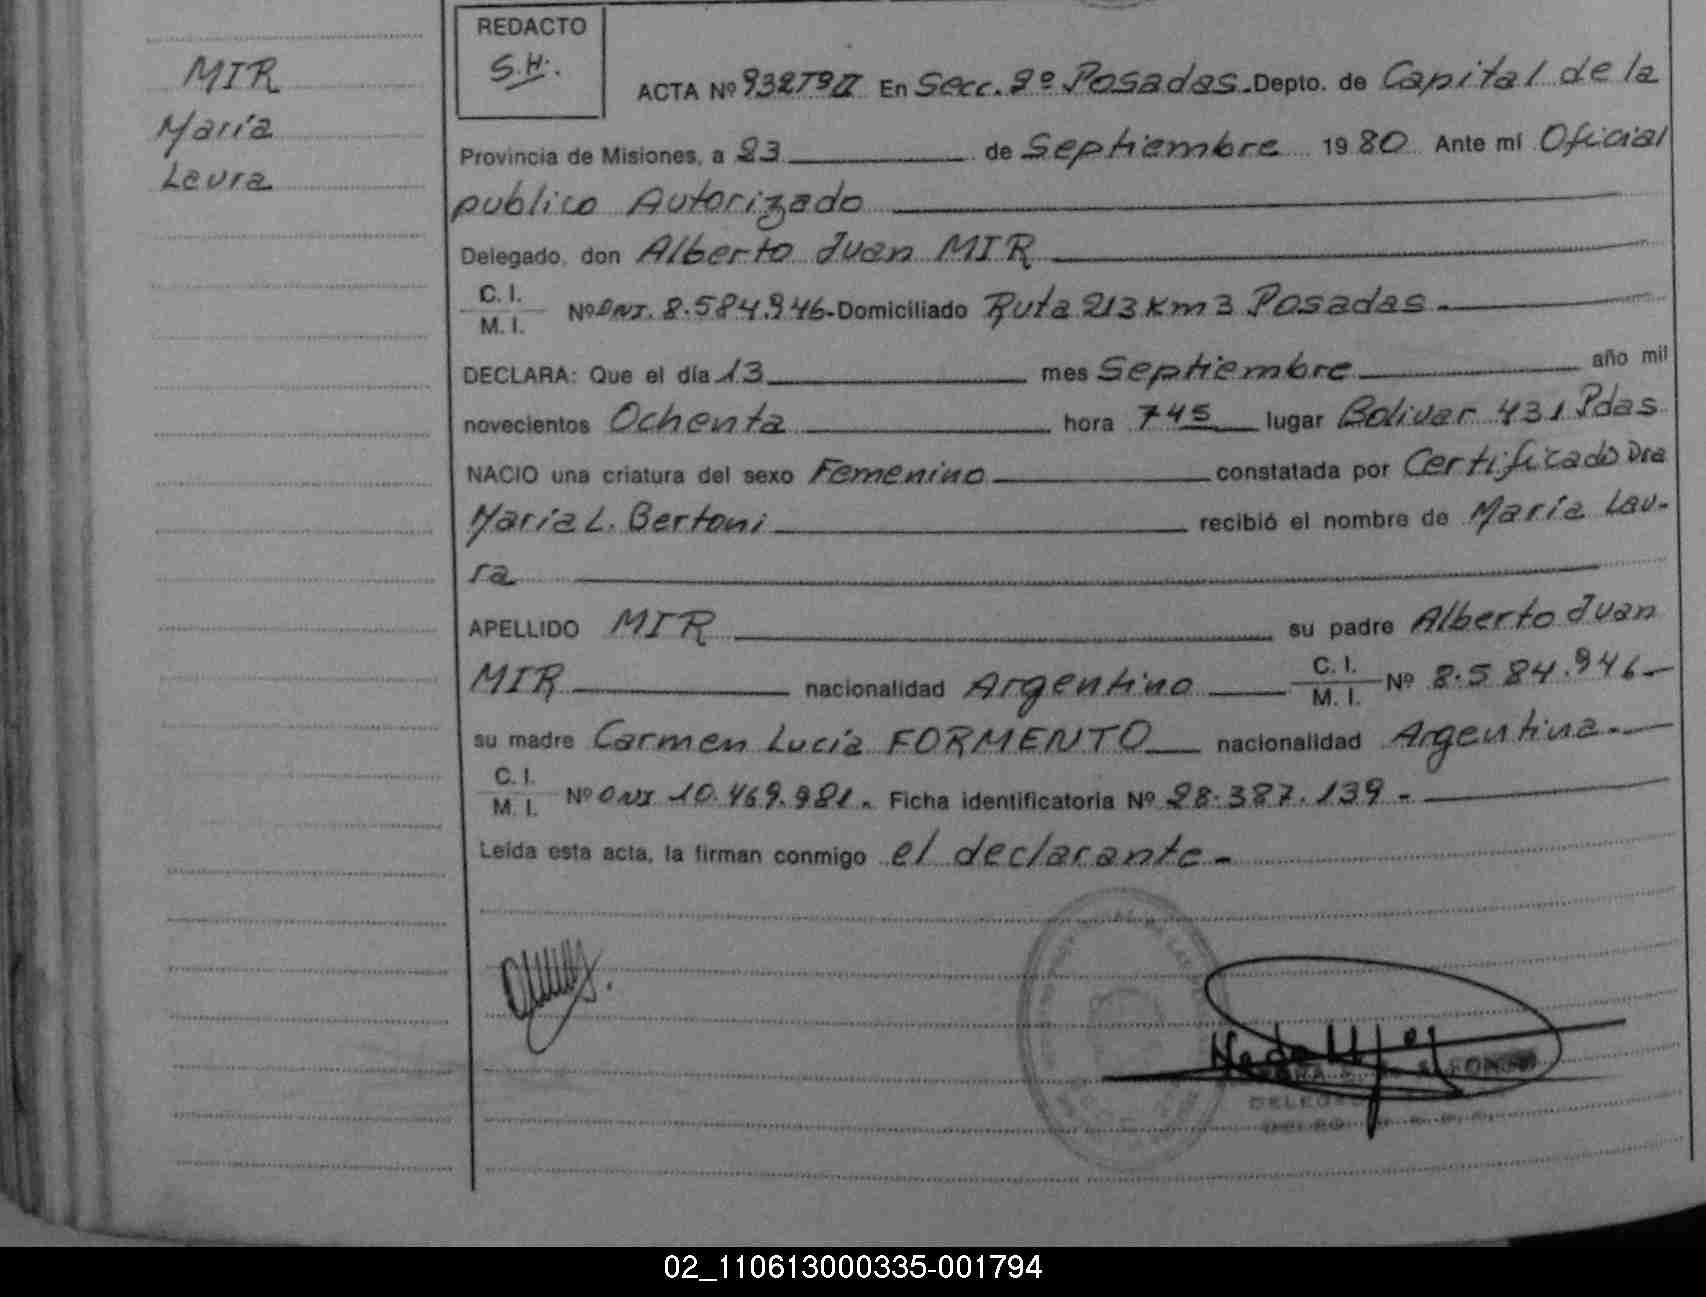 MIR
María
Laura
REDACTO
S.H.
ACTA Nº 93279 II En Secc. 2º Posadas. Depto. de Capital de la
Provincia de Misiones, a 23 de Septiembre 1980 Ante mi Oficial
publico Autorizado
Delegado, don Alberto Juan MIR
C. I.
M. I. Nº DNI. 8.584.946- Domiciliado Ruta 213 Km 3 Posadas -
DECLARA: Que el día 13 mes Septiembre año mil
novecientos Ochenta hora 745 lugar Bolivar 431 Pdas
NACIO una criatura del sexo Femenino constatada por Certificado Dra
María L. Bertoni recibió el nombre de María Lau-
ra
APELLIDO MIR su padre Alberto Juan
MIR nacionalidad Argentino C. I. M. I. Nº 8.584.946-
su madre Carmen Lucía FORMENTO nacionalidad Argentina.-
C. I.
M. I. Nº DNI 10.469.981. Ficha identificatoria Nº 28.387.139 -
Leida esta acta, la firman conmigo el declarante -
02_110613000335-001794